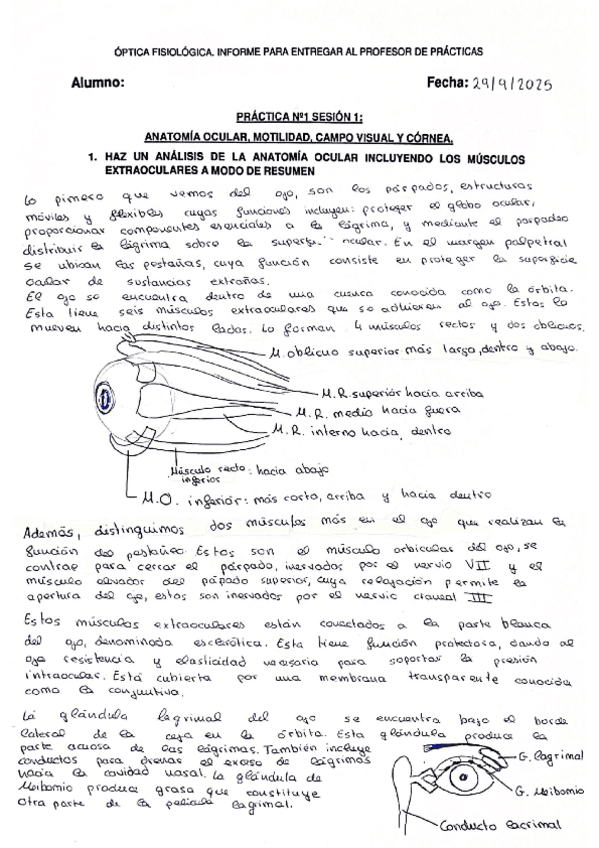 ÓPTICA FISIOLÓGICA. INFORME PARA ENTREGAR AL PROFESOR DE PRÁCTICAS
Alumno: Fecha: 29/9/2025
PRÁCTICA Nº1 SESIÓN 1:
ANATOMÍA OCULAR, MOTILIDAD, CAMPO VISUAL Y CÓRNEA.
1. HAZ UN ANÁLISIS DE LA ANATOMÍA OCULAR INCLUYENDO LOS MÚSCULOS
EXTRAOCULARES A MODO DE RESUMEN
Lo pimero que vemos del ojo, son los párpados, estructuras
móviles y flexibles cuyas funciones incluyen: proteger el globo ocular,
proporcionar componentes esenciales a la lágrima, y mediante el parpadeo
distribuir la lágrima sobre la ocular. En el margen palpebral
se ubican las pestañas, cuya función consiste en proteger la superficie
ocular de sustancias extrañas.
El ojo se encuentra dentro de una cuenca conocida como la órbita.
Esta tiene seis músculos extraoculares que se adhieren al ojo. Estos lo
mueven hacia distintos lados. Lo forman 4 músculos rectos y dos oblicuos.
M. oblicuo superior más largo, dentro y abajo.
M.R. superior hacia arriba
M.R. medio hacia fuera
M.R. interno hacia dentro
Músculo recto: hacia abajo
inferior
M.O. inferior: más corto, arriba y hacia dentro
Además, distinguimos dos músculos más en el ojo que realizan la
función del pestañeo. Estos son el músculo orbicular del ojo, se
contrae para cerrar el párpado, inervados por el nervio VII y el
músculo elevador del párpado superior, cuya relajación permite la
apertura del ojo, estos son inervados por el nervio craneal III
Estos músculos extraoculares están conectados a la parte blanca
del ojo, denominada esclerótica. Esta tiene función protectora, dando al
ojo resistencia y elasticidad necesaria para soportar la presión
intraocular. Está cubierta por una membrana transparente conocida
como la conjuntiva.
La glándula lagrimal del ojo se encuentra bajo el borde
lateral de la ceja en la órbita. Esta glándula produce la
parte acuosa de las lágrimas. También incluye
conductos para drenar el exceso de lágrimas
hacia la cavidad nasal. La glándula de
Meibomio produce grasa que constituye
otra parte de la película lagrimal.
G. lagrimal
G. Meibomio
Conducto lacrimal